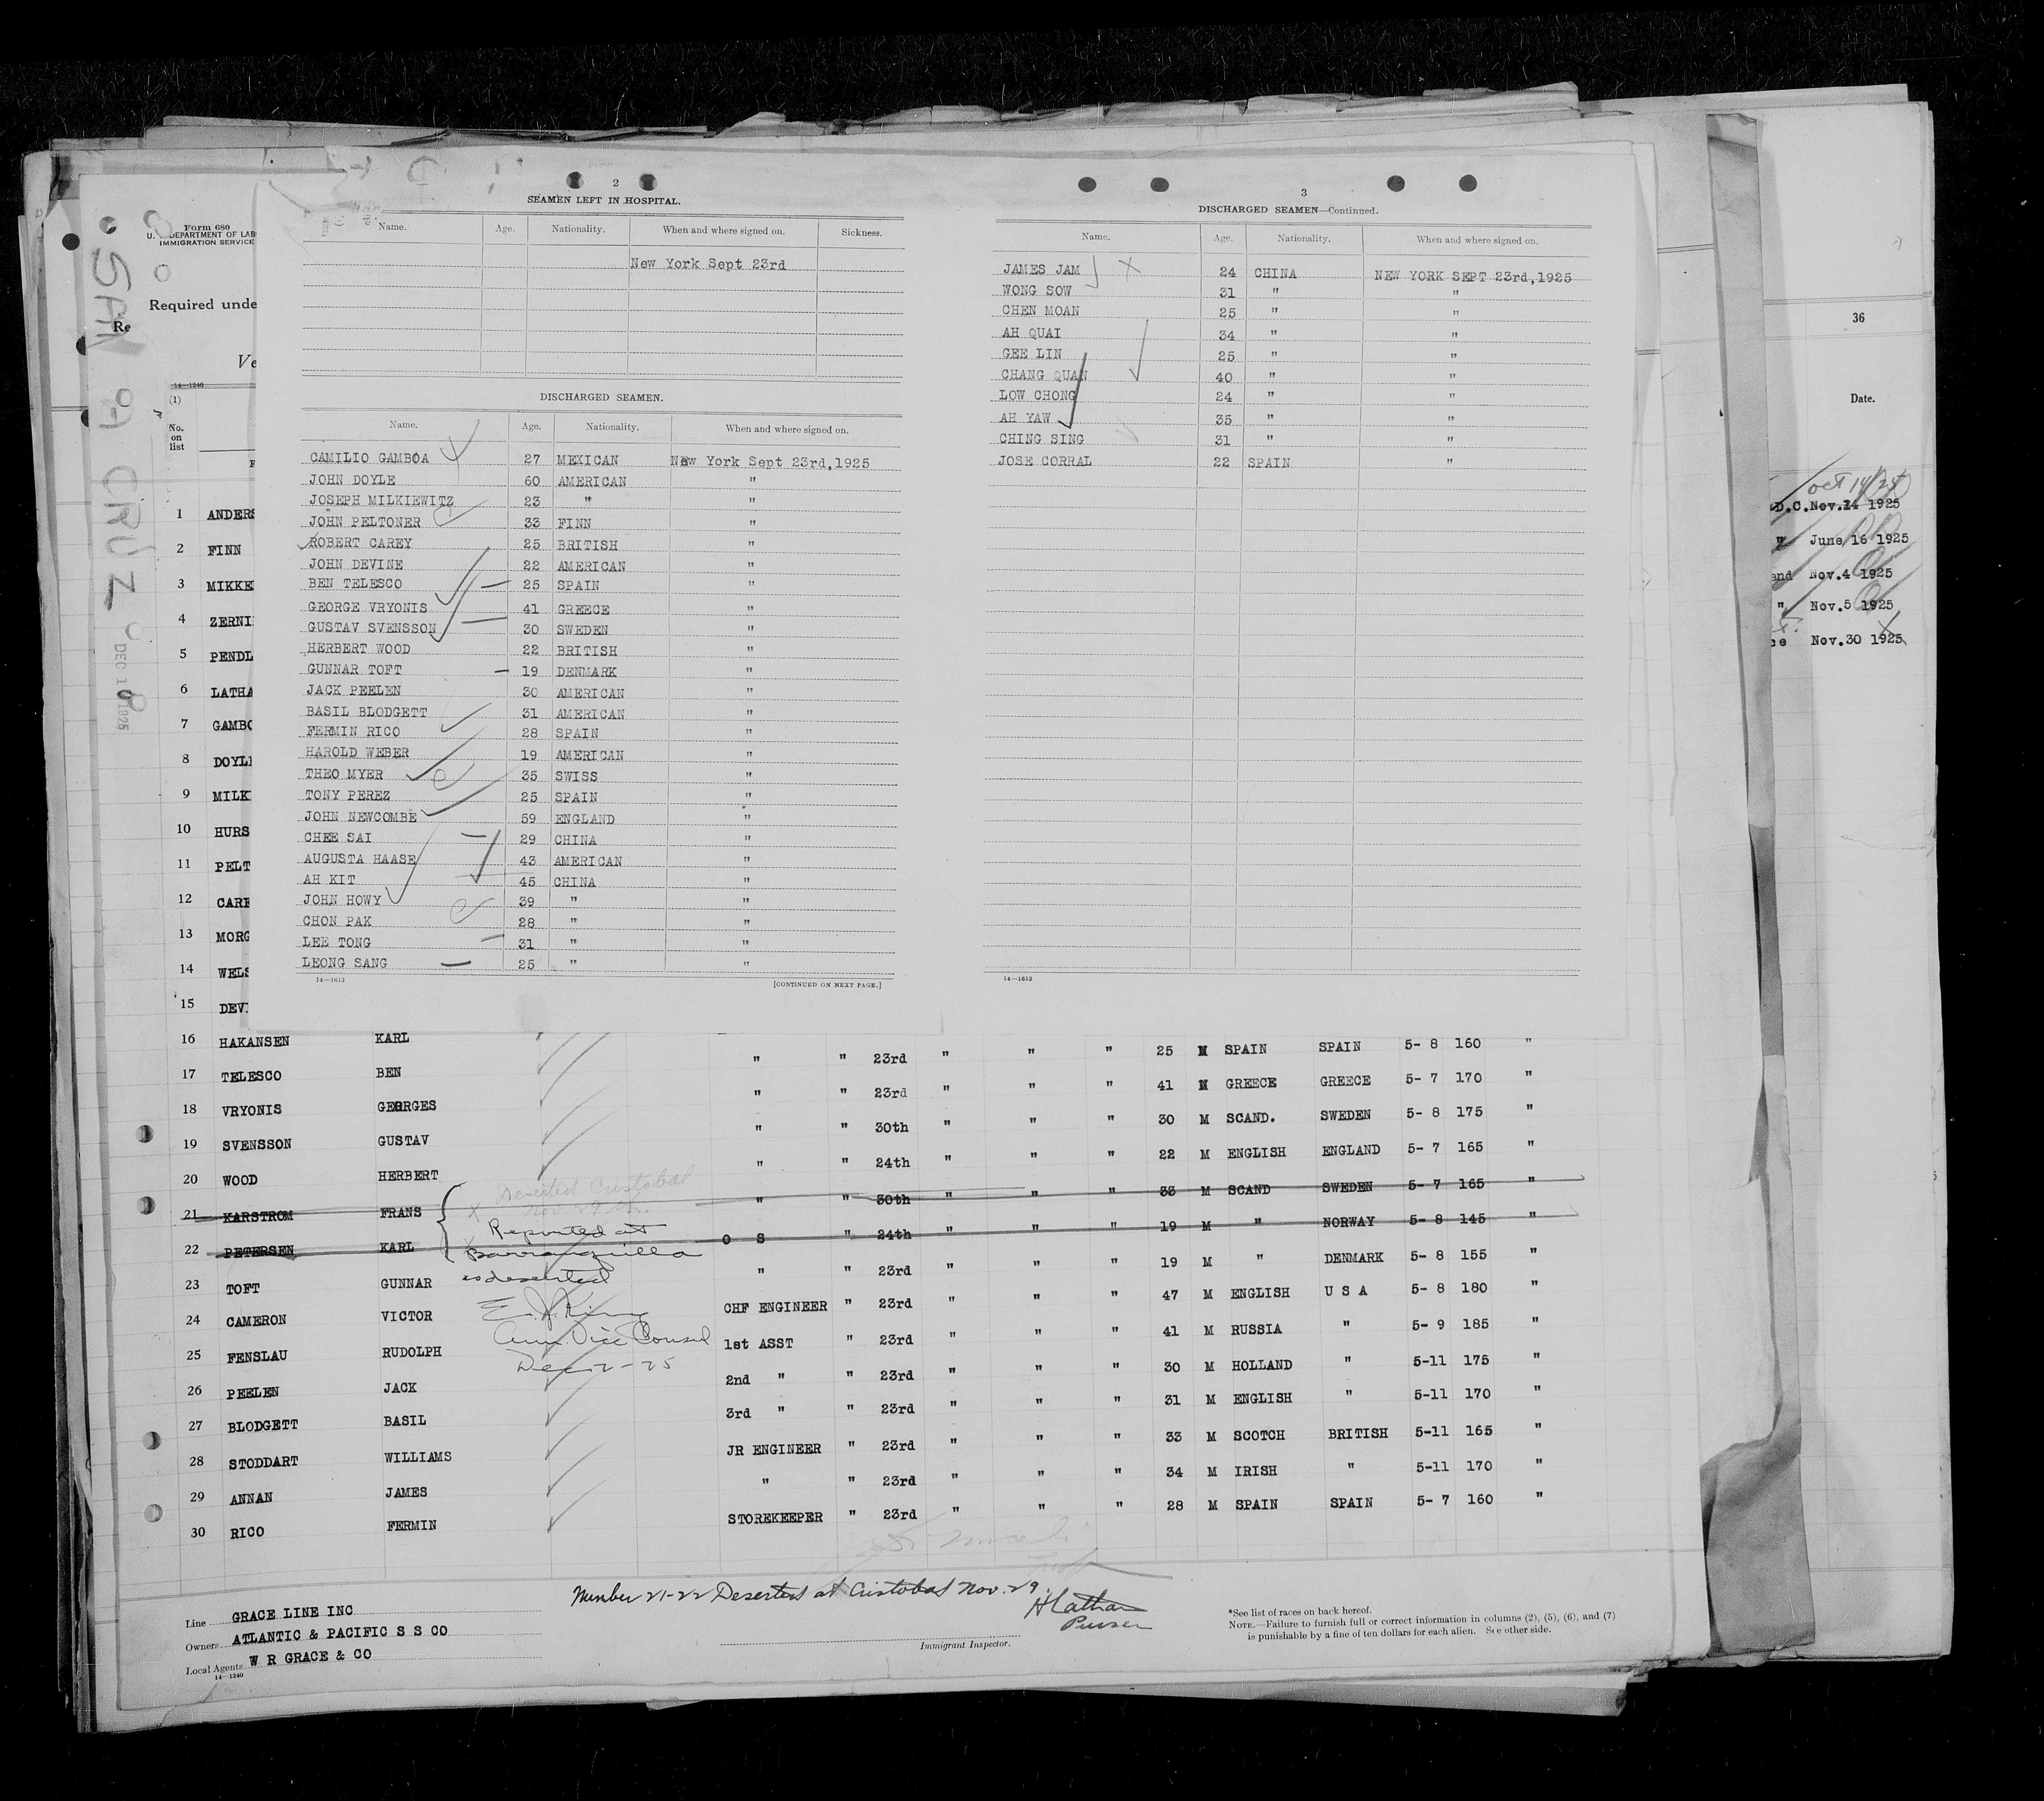 2
SEAMEN LEFT IN HOSPITAL.
Name. Age. Nationality. When and where signed on. Sickness.
New York Sept 23rd
DISCHARGED SEAMEN.
Name. Age. Nationality. When and where signed on.
CAMILIO GAMBOA 27 MEXICAN New York Sept 23rd,1925
JOHN DOYLE 60 AMERICAN "
JOSEPH MILKIEWITZ 23 " "
JOHN PELTONER 33 FINN "
ROBERT CAREY 25 BRITISH "
JOHN DEVINE 22 AMERICAN "
BEN TELESCO 25 SPAIN "
GEORGE VRYONIS 41 GREECE "
GUSTAV SVENSSON 30 SWEDEN "
HERBERT WOOD 22 BRITISH "
GUNNAR TOFT 19 DENMARK "
JACK PEELEN 30 AMERICAN "
BASIL BLODGETT 31 AMERICAN "
FERMIN RICO 28 SPAIN "
HAROLD WEBER 19 AMERICAN "
THEO MYER 35 SWISS "
TONY PEREZ 25 SPAIN "
JOHN NEWCOMBE 59 ENGLAND "
CHEE SAI 29 CHINA "
AUGUSTA HAASE 43 AMERICAN "
AH KIT 45 CHINA "
JOHN HOWY 39 " "
CHON PAK 28 " "
LEE TONG 31 " "
LEONG SANG 25 " "
14—1613 [CONTINUED ON NEXT PAGE.]
3
DISCHARGED SEAMEN—Continued.
Name. Age. Nationality. When and where signed on.
JAMES JAM 24 CHINA NEW YORK SEPT 23rd,1925
WONG SOW 31 " "
CHEN MOAN 25 " "
AH QUAI 34 " "
GEE LIN 25 " "
CHANG QUAN 40 " "
LOW CHONG 24 " "
AH YAW 35 " "
CHING SING 31 " "
JOSE CORRAL 22 SPAIN "
14—1613
Form 680
U. S. DEPARTMENT OF LAB
IMMIGRATION SERVICE
Required unde
Re
Ve
14—1240
(1)
No. on list
F
SAN
CRUZ
DEC 10 1925
1 ANDERS
2 FINN
3 MIKKE
4 ZERNI
5 PENDL
6 LATHA
7 GAMBO
8 DOYL
9 MILK
10 HURS
11 PELT
12 CARE
13 MORG
14 WELS
15 DEV
16 HAKANSEN KARL
17 TELESCO BEN " " 23rd " " " 25 M SPAIN SPAIN 5- 8 160 "
18 VRYONIS GEORGES " " 23rd " " " 41 M GREECE GREECE 5- 7 170 "
19 SVENSSON GUSTAV " " 30th " " " 30 M SCAND. SWEDEN 5- 8 175 "
20 WOOD HERBERT " " 24th " " " 22 M ENGLISH ENGLAND 5- 7 165 "
21 KARSTROM FRANS " " 30th " " " 33 M SCAND SWEDEN 5- 7 165 "
22 PETERSEN KARL O S " 24th " " " 19 M " NORWAY 5- 8 145 "
23 TOFT GUNNAR " " 23rd " " " 19 M " DENMARK 5- 8 155 "
24 CAMERON VICTOR CHF ENGINEER " 23rd " " " 47 M ENGLISH U S A 5- 8 180 "
25 FENSLAU RUDOLPH 1st ASST " 23rd " " " 41 M RUSSIA " 5- 9 185 "
26 PEELEN JACK 2nd " " 23rd " " " 30 M HOLLAND " 5-11 175 "
27 BLODGETT BASIL 3rd " " 23rd " " " 31 M ENGLISH " 5-11 170 "
28 STODDART WILLIAMS JR ENGINEER " 23rd " " " 33 M SCOTCH BRITISH 5-11 165 "
29 ANNAN JAMES " " 23rd " " " 34 M IRISH " 5-11 170 "
30 RICO FERMIN STOREKEEPER " 23rd " " " 28 M SPAIN SPAIN 5- 7 160 "
Deserted Cristobal
Nov 29th.
Reported at
Barranquilla
as deserted
E. J. King
Am. Vice Consul
Dec 2-25
Number 21-22 Deserted at Cristobal Nov. 29.
H Latham
Purser
Immigrant Inspector.
Line GRACE LINE INC
Owners ATLANTIC & PACIFIC S S CO
Local Agents W R GRACE & CO
14—1240
*See list of races on back hereof.
NOTE.—Failure to furnish full or correct information in columns (2), (5), (6), and (7)
is punishable by a fine of ten dollars for each alien. See other side.
36
Date.
Oct 14/24
D.C. Nov.14 1925
" June 16 1925
and Nov.4 1925
" Nov.5 1925
ce Nov.30 1925